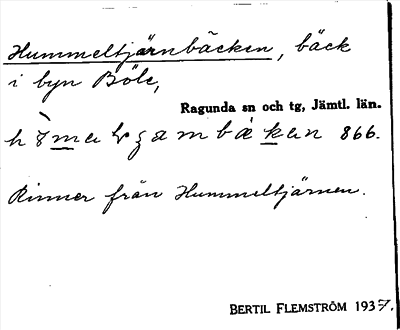 Hummeltjärnbäcken, bäck
i byn Böle,
Ragunda sn och tg, Jämtl. län.
866.
Rinner från Hummeltjärnen.
BERTIL FLEMSTRÖM 1937.